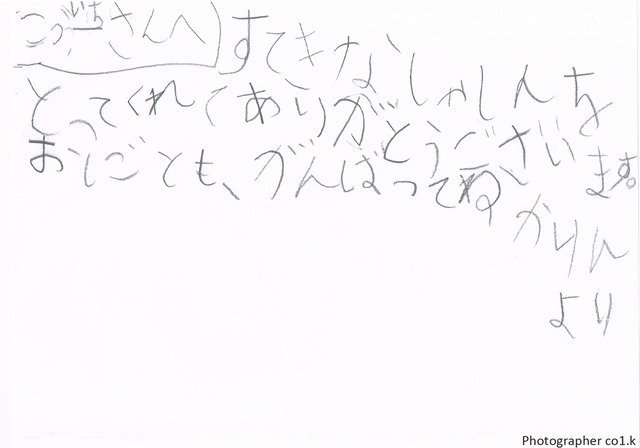 こういちさんへ すてきなしゃしんを
とってくれてありがとうございます。
おしごとも、がんばってね
かりん
より
Photographer co1.k